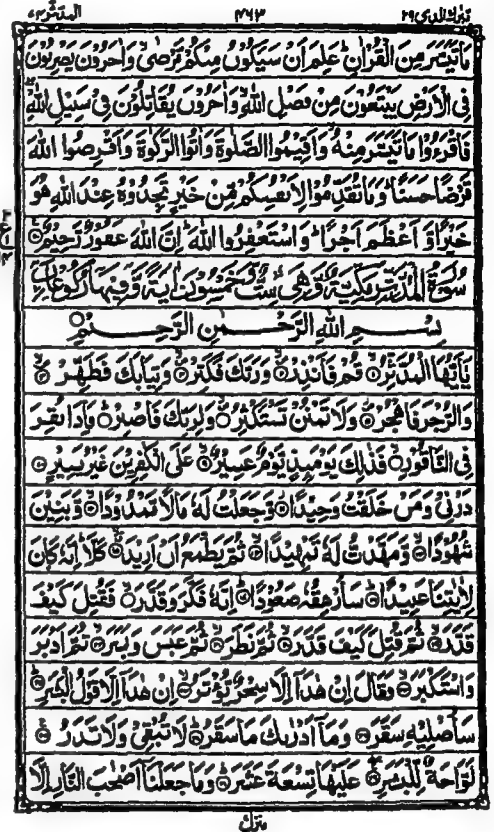 تبٰرك الذى ٢٩ ٤٦٣ المدثر ٧٤
مَا تَيَسَّرَ مِنَ الْقُرْاٰنِ ؕ عَلِمَ اَنْ سَيَكُوْنُ مِنْكُمْ مَّرْضٰى ۙ وَاٰخَرُوْنَ يَضْرِبُوْنَ
فِى الْاَرْضِ يَبْتَغُوْنَ مِنْ فَضْلِ اللّٰهِ ۙ وَاٰخَرُوْنَ يُقَاتِلُوْنَ فِىْ سَبِيْلِ اللّٰهِ ۖ
فَاقْرَءُوْا مَا تَيَسَّرَ مِنْهُ ۙ وَاَقِيْمُوا الصَّلٰوةَ وَاٰتُوا الزَّكٰوةَ وَاَقْرِضُوا اللّٰهَ
قَرْضًا حَسَنًا ؕ وَمَا تُقَدِّمُوْا لِاَنْفُسِكُمْ مِّنْ خَيْرٍ تَجِدُوْهُ عِنْدَ اللّٰهِ هُوَ
خَيْرًا وَّاَعْظَمَ اَجْرًا ؕ وَاسْتَغْفِرُوا اللّٰهَ ؕ اِنَّ اللّٰهَ غَفُوْرٌ رَّحِيْمٌ ۟
سُوْرَةُ الْمُدَّثِّرِ مَكِّيَّةٌ وَّهِىَ سِتٌّ وَّخَمْسُوْنَ اٰيَةً وَّفِيْهَا رُكُوْعَانِ
بِسْمِ اللّٰهِ الرَّحْمٰنِ الرَّحِيْمِ
يٰۤاَيُّهَا الْمُدَّثِّرُ ۙ قُمْ فَاَنْذِرْ ۙ وَرَبَّكَ فَكَبِّرْ ۙ وَثِيَابَكَ فَطَهِّرْ ۙ
وَالرُّجْزَ فَاهْجُرْ ۙ وَلَا تَمْنُنْ تَسْتَكْثِرُ ۙ وَلِرَبِّكَ فَاصْبِرْ ؕ فَاِذَا نُقِرَ
فِى النَّاقُوْرِ ۙ فَذٰلِكَ يَوْمَئِذٍ يَّوْمٌ عَسِيْرٌ ۙ عَلَى الْكٰفِرِيْنَ غَيْرُ يَسِيْرٍ
ذَرْنِىْ وَمَنْ خَلَقْتُ وَحِيْدًا ۙ وَّجَعَلْتُ لَهٗ مَالًا مَّمْدُوْدًا ۙ وَّبَنِيْنَ
شُهُوْدًا ۙ وَّمَهَّدْتُّ لَهٗ تَمْهِيْدًا ۙ ثُمَّ يَطْمَعُ اَنْ اَزِيْدَ ۙ كَلَّا ؕ اِنَّهٗ كَانَ
لِاٰيٰتِنَا عَنِيْدًا ؕ سَاُرْهِقُهٗ صَعُوْدًا ؕ اِنَّهٗ فَكَّرَ وَقَدَّرَ ۙ فَقُتِلَ كَيْفَ
قَدَّرَ ۙ ثُمَّ قُتِلَ كَيْفَ قَدَّرَ ۙ ثُمَّ نَظَرَ ۙ ثُمَّ عَبَسَ وَبَسَرَ ۙ ثُمَّ اَدْبَرَ
وَاسْتَكْبَرَ ۙ فَقَالَ اِنْ هٰذَاۤ اِلَّا سِحْرٌ يُّؤْثَرُ ۙ اِنْ هٰذَاۤ اِلَّا قَوْلُ الْبَشَرِ ؕ
سَاُصْلِيْهِ سَقَرَ وَمَاۤ اَدْرٰىكَ مَا سَقَرُ ؕ لَا تُبْقِىْ وَلَا تَذَرُ ۚ
لَوَّاحَةٌ لِّلْبَشَرِ ۚ عَلَيْهَا تِسْعَةَ عَشَرَ ؕ وَمَا جَعَلْنَاۤ اَصْحٰبَ النَّارِ اِلَّا
منزل